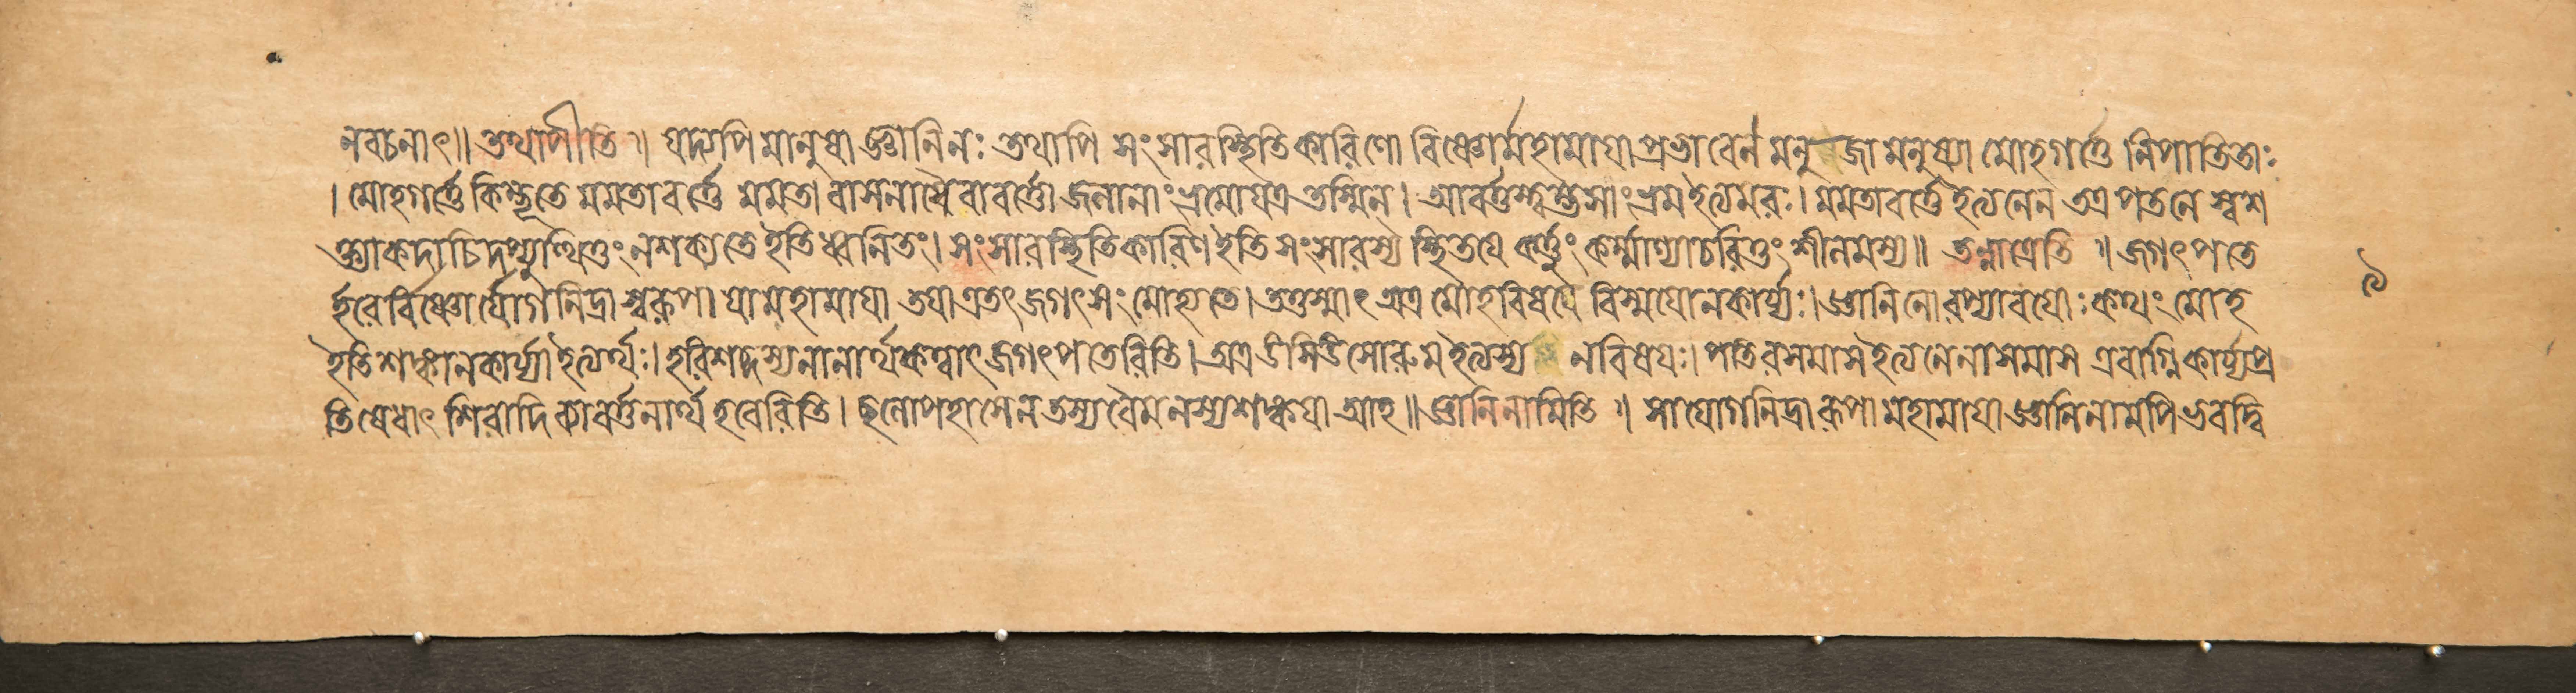 নবচনাৎ॥ তথাপীতি ॥ যদ্যপি মানুষা জ্ঞানিনঃ তথাপি সংসারস্থিতিকারিণো বিষ্ণোর্মহামাযাপ্রভাবেন মনুজা মনুষ্যা মোহগর্ত্তে নিপাতিতাঃ
। মোহগর্ত্তে কিম্ভূতে মমতাবর্ত্তে মমতা বাসনাযৈবাবর্ত্তো জনানাং ভ্রমো যত্র তস্মিন্। আবর্ত্তস্ত্বম্ভসাং ভ্রম ইত্যমরঃ। মমতাবর্ত্তে ইত্যনেন তত্র পতনে স্বশ
ক্ত্যা কদাচিদপ্যুত্থিতুং ন শক্যতে ইতি ধ্বনিতং। সংসারস্থিতিকারিণ ইতি সংসারস্য স্থিতযে কর্ত্তুং কর্ম্মাণ্যাচরিতুং শীলমস্য॥ তন্নাত্রেতি ॥ জগৎপতে
র্হরের্বিষ্ণোর্যোগনিদ্রাস্বরূপা যা মহামাযা তযা এতৎ জগৎ সংমোহ্যতে। তত্তস্মাৎ অত্র মোহবিষযে বিস্মযো ন কার্য্যঃ। জ্ঞানিনোরপ্যাবযোঃ কথং মোহ
ইতি শঙ্কা ন কার্য্যা ইত্যর্থঃ। হরিশব্দস্য নানার্থকত্বাৎ জগৎপতেরিতি। অত্র ঙসিঙসোরুম ইত্যস্য ন বিষযঃ। পতিরসমাস ইত্যনেনাসমাস এবাগ্নিকার্য্যপ্র
তিষেধাৎ শিবাদিব্যাবর্ত্তনার্থং হরেরিতি। ছলোপহাসেন তস্য বৈমনস্যশঙ্কযা আহ॥ জ্ঞানিনামিতি ॥ সা যোগনিদ্রারূপা মহামাযা জ্ঞানিনামপি ভবদ্বি
৯